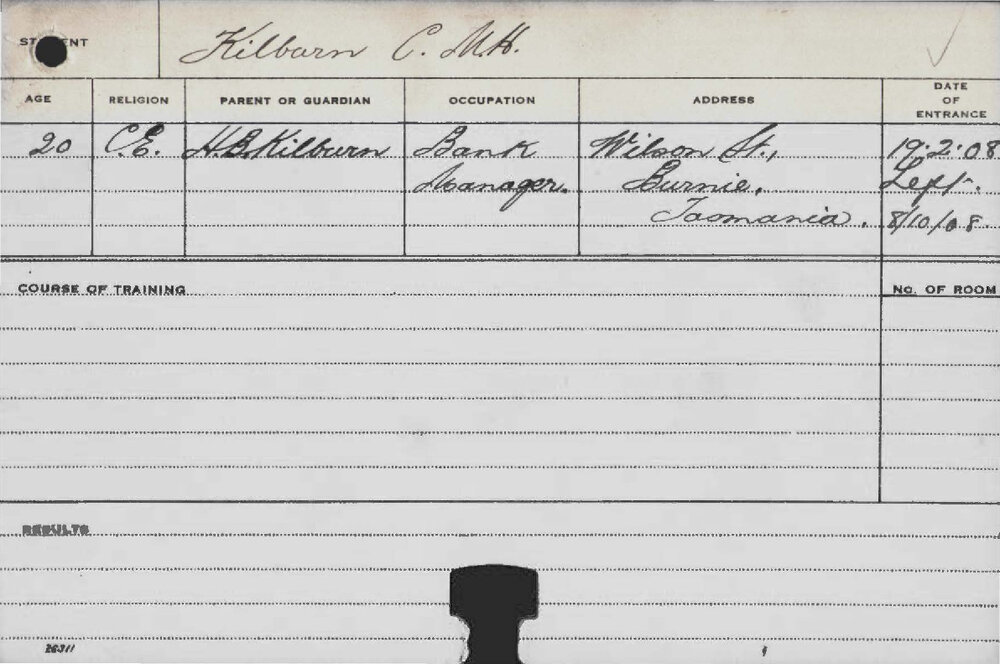 STUDENT Kilburn C. M.H.
AGE RELIGION PARENT OR GUARDIAN OCCUPATION ADDRESS DATE OF ENTRANCE
20 C.E. H.B. Kilburn Bank Wilson St., 19.2.08
Manager. Burnie, Left.
Tasmania. 8/10/08.
COURSE OF TRAINING No. OF ROOM
RESULTS